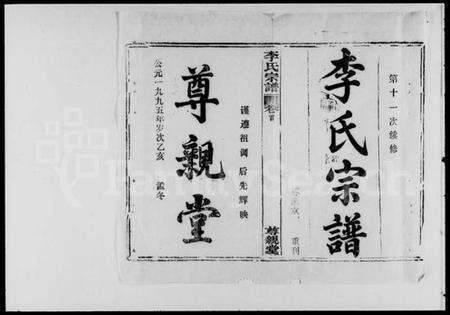 第十一次续修
李氏宗譜
重刊
李氏宗譜
卷首
尊親堂
谨遵祖训 后先辉映
尊親堂
公元一九九五年岁次乙亥 孟冬